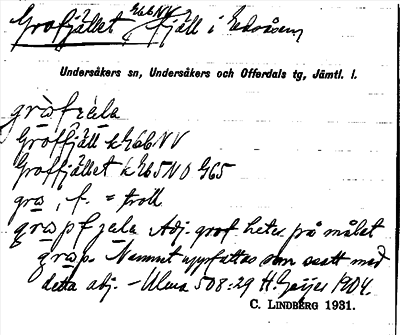 Grofjället k266NV fjäll i Edsåsen
Undersåkers sn, Undersåkers och Offerdals tg, Jämtl. l.
gròfꞩɛla
Groffjäll k266NV
Groffjället k265NO G65
gro, f. = troll
gropfꞩɛla Adj. grof heter på målet
grop. Namnet uppfattas som samt med
detta adj. – Ulma 508:29 H. Geijer 1904.
C. LINDBERG 1931.